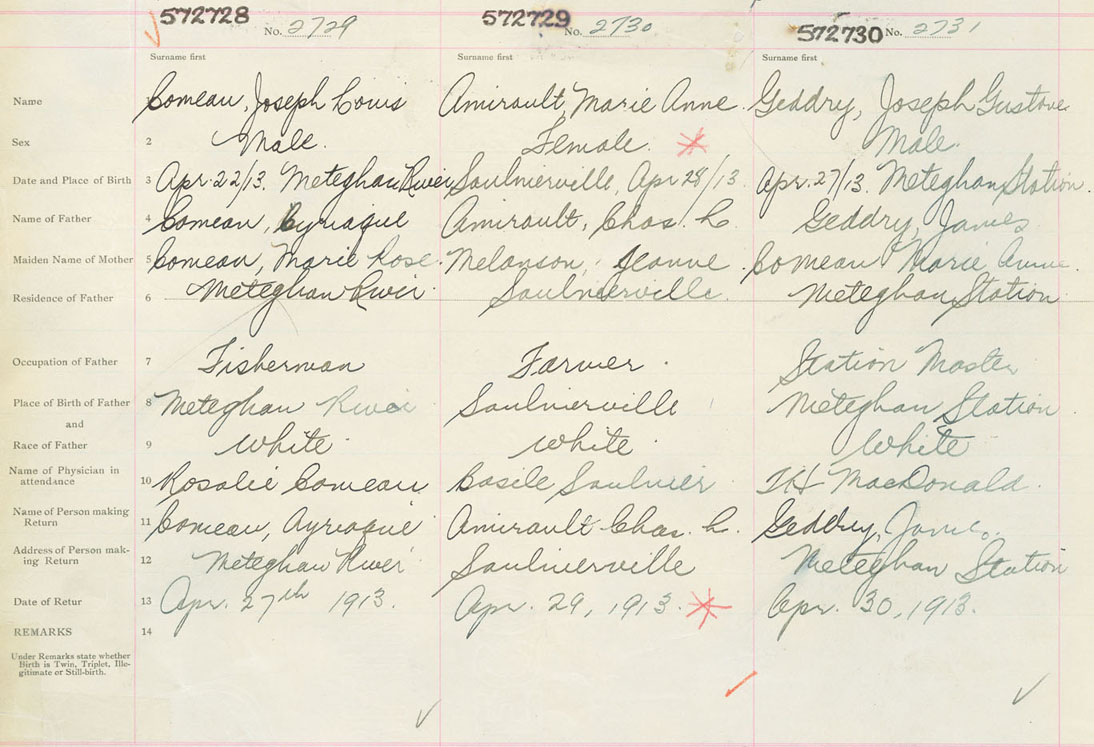 572728 No. 2729 572729 No. 2730 572730 No. 2731
Surname first Surname first Surname first
Name Comeau, Joseph Louis Amirault, Marie Anne. Geddry, Joseph Gustave
Sex 2 Male. Female. Male.
Date and Place of Birth 3 Apr. 22/13. Meteghan River Saulnierville, Apr 28/13. Apr. 27/13. Meteghan Station.
Name of Father 4 Comeau, Cyriaque Amirault, Chas. L. Geddry, James
Maiden Name of Mother 5 Comeau, Marie Rose. Melanson, Jeanne. Comeau Marie Annie.
Residence of Father 6 Meteghan River. Saulnierville. Meteghan Station
Occupation of Father 7 Fisherman Farmer. Station Master
Place of Birth of Father 8 Meteghan River Saulnierville Meteghan Station
and
Race of Father 9 White. White. White.
Name of Physician in
attendance 10 Rosalie Comeau Basile Saulnier. MacDonald.
Name of Person making
Return 11 Comeau, Ayriaque Amirault Chas. L. Geddry, James.
Address of Person mak-
ing Return 12 Meteghan River Saulnierville Meteghan Station
Date of Retur 13 Apr. 27th 1913. Apr. 29, 1913. Apr. 30, 1913.
REMARKS 14
Under Remarks state whether
Birth is Twin, Triplet, Ille-
gitimate or Still-birth.